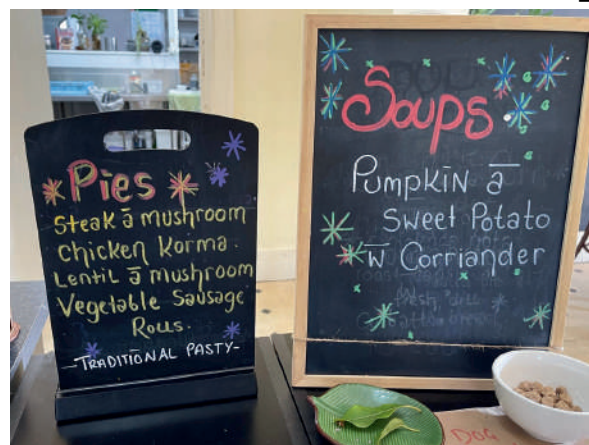 Pies
Steak ā mushroom
Chicken Korma.
Lentil ā mushroom
Vegetable Sausage
Rolls.
-TRADITIONAL PASTY-
Soups
Pumpkin ā
Sweet Potato
w̄ Corriander
DOG